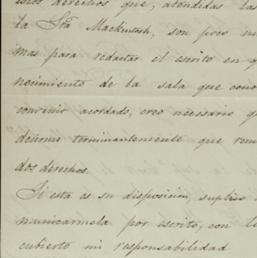 derechos que, atendidas las
la Sra Mackintosh, son poco
mas para redactar el escrito en q
nocimiento de la sala que
convenio acordado, creo necesario q
decirme terminantemente que ren
dos derechos.
Si esta es su disposicion, suplico
municarmela por escrito, con l
cubierto mi responsabilidad